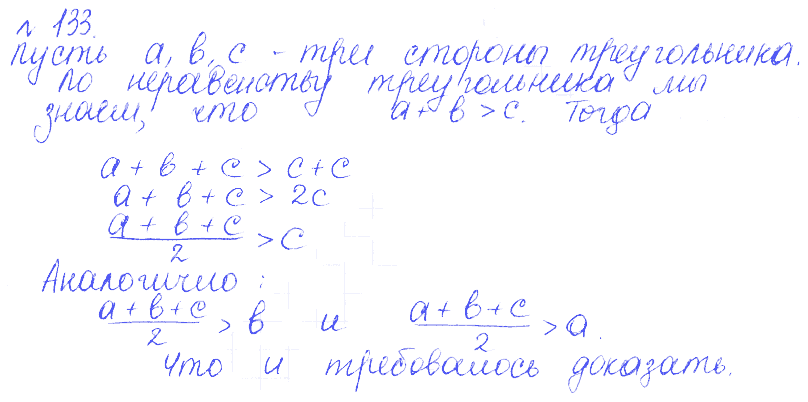 № 133.
Пусть a, b, c - три стороны треугольника.
По неравенству треугольника мы
знаем, что a + b > c. Тогда
a + b + c > c + c
a + b + c > 2c
(a + b + c)/2 > c
Аналогично :
(a + b + c)/2 > b и (a + b + c)/2 > a.
Что и требовалось доказать.